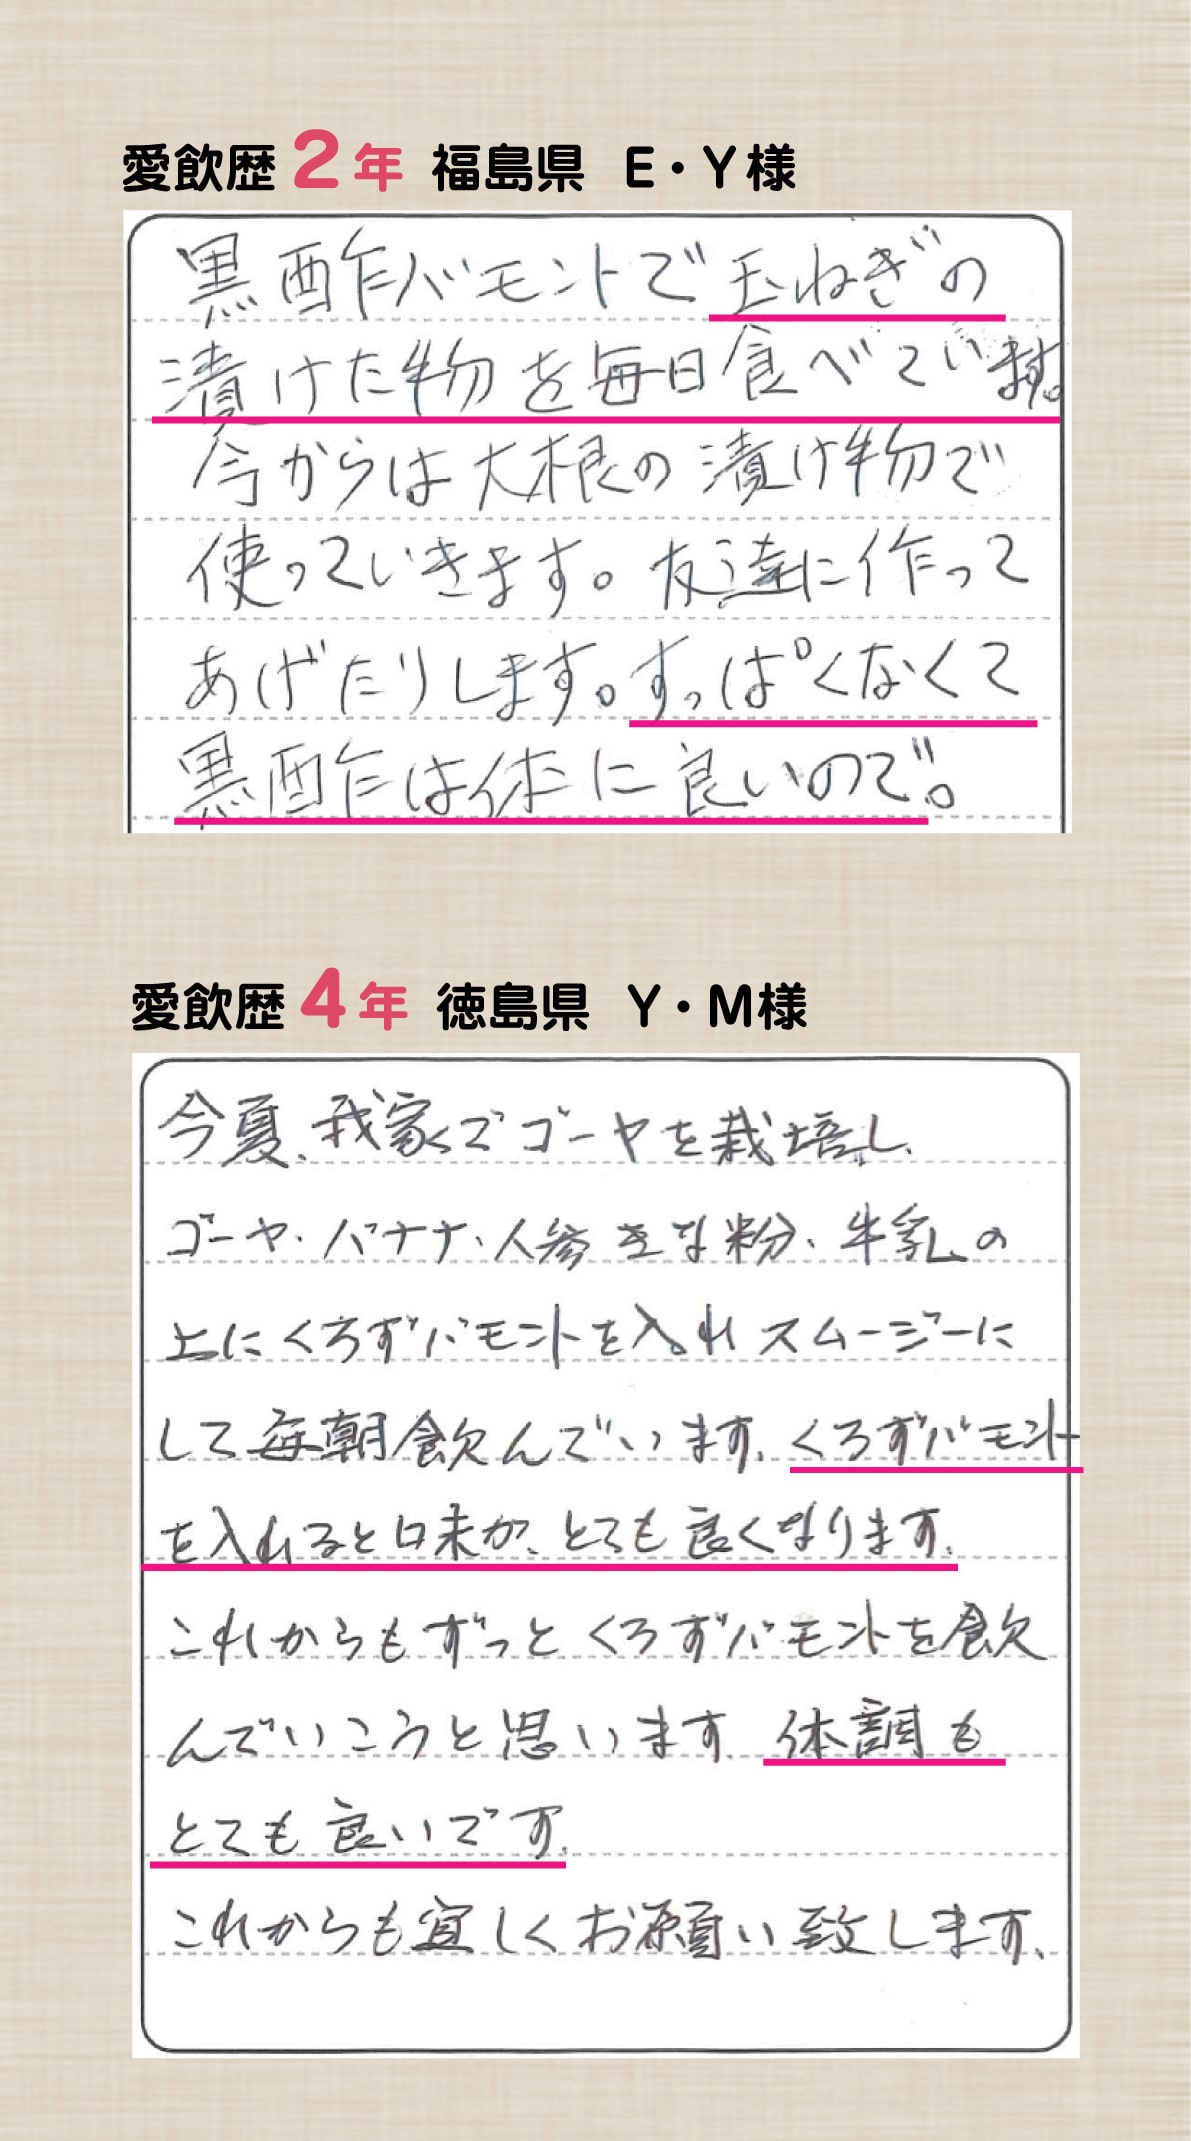 愛飲歴2年 福島県 E・Y様
黒酢バモントで玉ねぎの
漬けた物を毎日食べています。
今からは大根の漬け物で
使っていきます。友達に作って
あげたりします。すっぱくなくて
黒酢は体に良いので。
愛飲歴4年 徳島県 Y・M様
今夏、我家でゴーヤを栽培し、
ゴーヤ、バナナ、人参 きな粉、牛乳の
上にくろずバモントを入れスムージーに
して毎朝飲んでいます。くろずバモント
を入れると味が、とても良くなります。
これからもずっとくろずバモントを飲
んでいこうと思います。体調も
とても良いです。
これからも宜しくお願い致します。